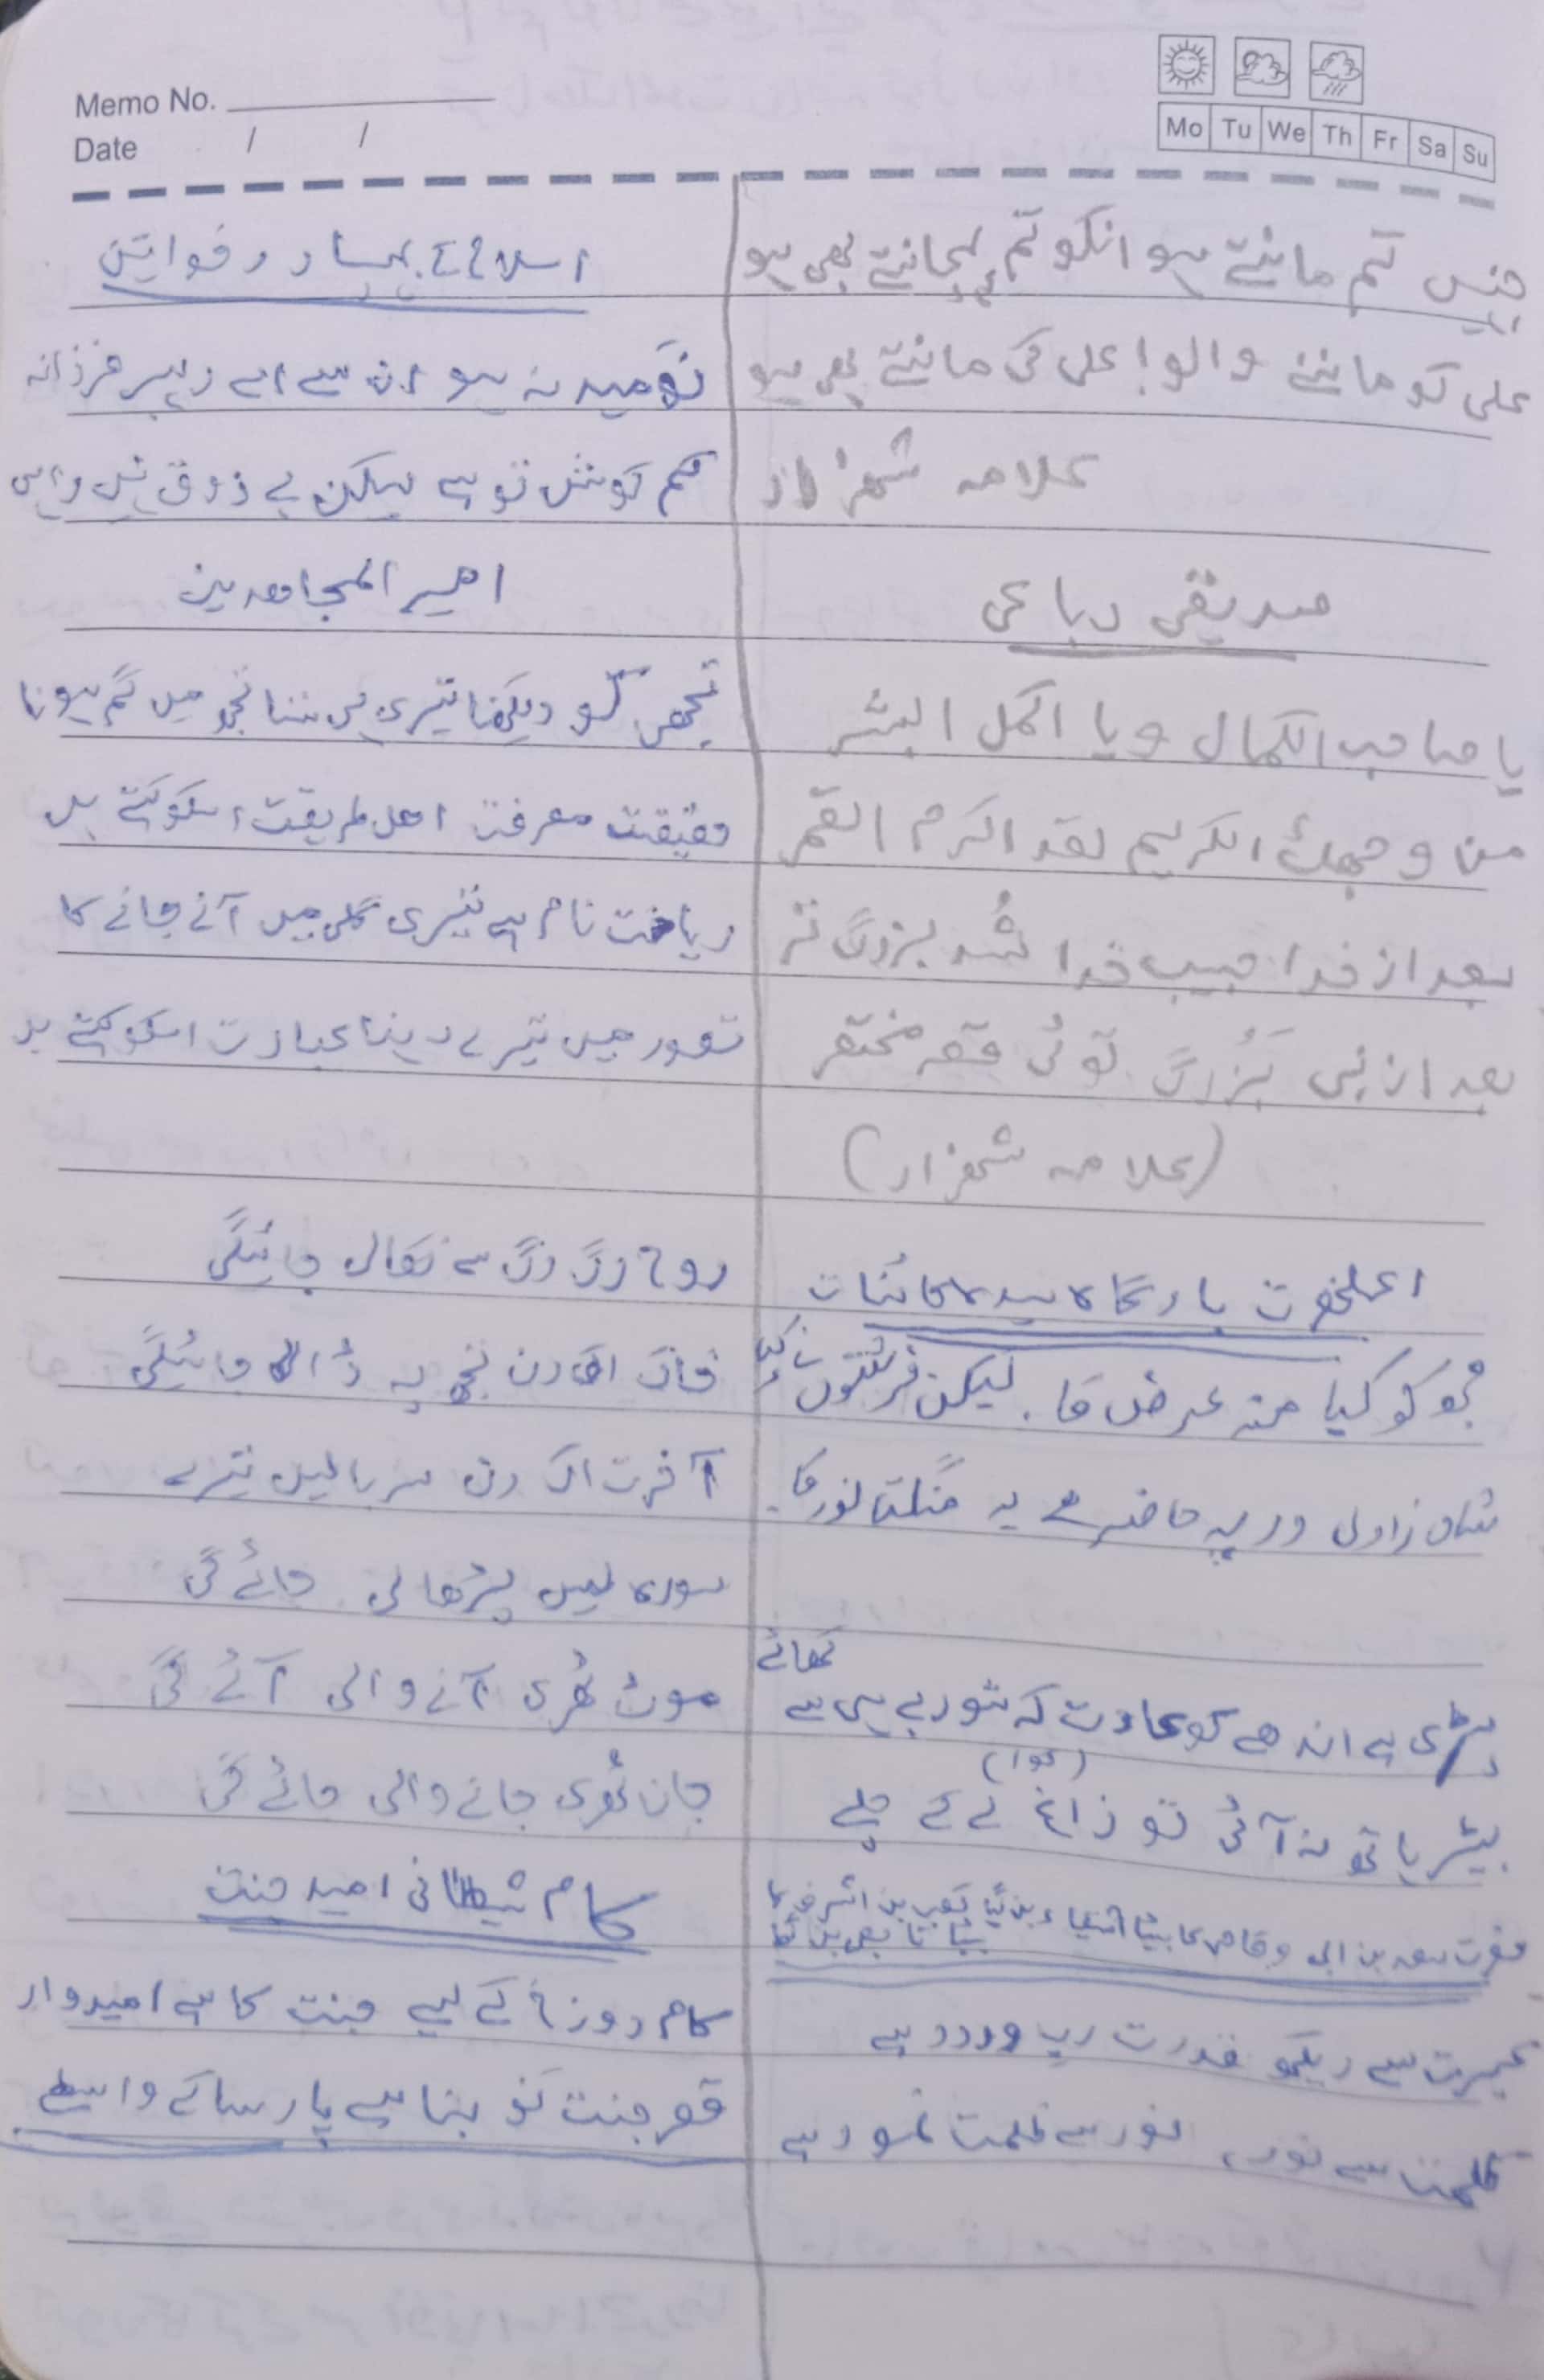 Memo No.
Date / /
Mo Tu We Th Fr Sa Su
جنہیں تم مانتے ہو انکو تم پہچانتے بھی ہو
علی کو ماننے والو! علی کی مانتے بھی ہو
علامہ شہزاد
صدیقی رباعی
یا صاحب الکمال و یا اکمل البشر
من وجھک الکریم لقد اکرم القمر
بعد از خدا حبیب خدا شد بزرگ تر
بعد از نبی بزرگ توئی قصہ مختصر
(علامہ شہزاد)
اعلحضرت بارگاہ سیدہ کائنات
مجھ کو کیا منہ عرض کا . لیکن فرشتوں نے کہا
شاہ زادی در پہ حاضر ہے یہ منگتا نور کا .
پڑی ہے اندھے کو عادت کہ شوربے ہی سے کھائے
بٹیر ہاتھ نہ آئی تو زاغ لے کے چلے
(کوا)
حضرت سعد بن ابی وقاص کا بیٹا
کعب بن اشرف کا
بیٹا تابعی بن گیا
عبرت سے دیکھو قدرت رب ودود ہے
ظلمت سے نور، نور سے ظلمت نمود ہے
اسلاح کے بعد
نومید نہ ہو ان سے اے رہبر فرزانہ
کم کوش تو ہے لیکن بے ذوق نہیں راہی
امیر المجاھدین
تجھی کو دیکھنا تیری ہی سننا تجھ میں گم ہونا
حقیقت معرفت اھل طریقت اسکو کہتے ہیں
ریاضت نام ہے تیری گلی میں آنے جانے کا
تصور میں تیرے رہنا عبادت اسکو کہتے ہیں
روح رگ رگ سے نکالی جائیگی
خاک اک دن تجھ پہ ڈالی جائیگی
آخرت اک دن سر بالیں تیرے
سورہ یس پڑھالی جائے گی
موت ٹھہری آنے والی آئے گی
جان ٹھہری جانے والی جائے گی
کام شیطانی امید جنت
کام دوزخ کے لیے جنت کا ہے امیدوار
قصر جنت تو بنا ہے پارسا کے واسطے